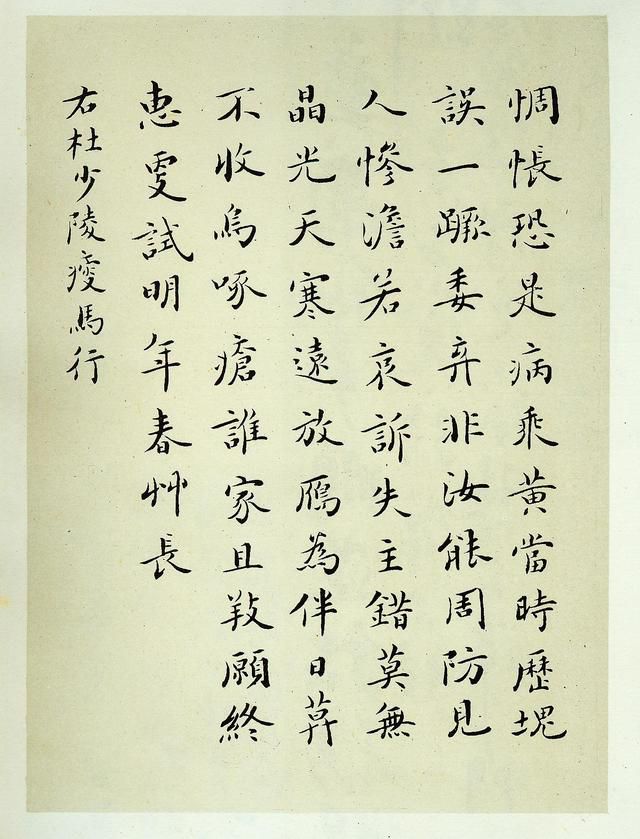 惆悵恐是病乘黃當時歷塊
誤一蹶委弃非汝能周防見
人慘澹若哀訴失主錯莫無
晶光天寒遠放鴈為伴日𦱤
不收烏啄瘡誰家且𢼝願終
惠更試明年春艸長
右杜少陵瘦馬行